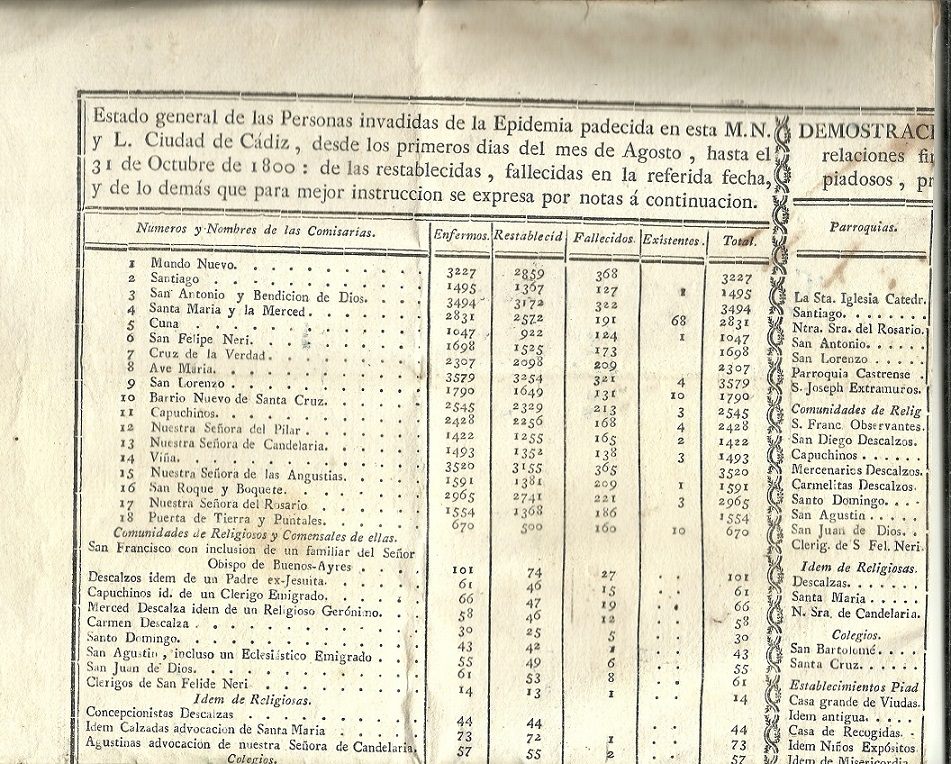 Estado general de las Personas invadidas de la Epidemia padecida en esta M. N.
y L. Ciudad de Cádiz, desde los primeros dias del mes de Agosto, hasta el
31 de Octubre de 1800: de las restablecidas, fallecidas en la referida fecha,
y de lo demás que para mejor instruccion se expresa por notas á continuacion.
Numeros y Nombres de las Comisarias. Enfermos. Restablecid Fallecidos. Existentes. Total.
1 Mundo Nuevo. 3227 2859 368 3227
2 Santiago 1495 1367 127 1 1495
3 San Antonio y Bendicion de Dios. 3494 3172 322 3494
4 Santa Maria y la Merced. 2831 2572 191 68 2831
5 Cuna 1047 922 124 1 1047
6 San Felipe Neri. 1698 1525 173 1698
7 Cruz de la Verdad. 2307 2098 209 2307
8 Ave Maria. 3579 3254 321 4 3579
9 San Lorenzo 1790 1649 131 10 1790
10 Barrio Nuevo de Santa Cruz. 2545 2329 213 3 2545
11 Capuchinos. 2428 2256 168 4 2428
12 Nuestra Señora del Pilar 1422 1255 165 2 1422
13 Nuestra Señora de Candelaria. 1493 1352 138 3 1493
14 Viña. 3520 3155 365 3520
15 Nuestra Señora de las Angustias. 1591 1381 209 1 1591
16 San Roque y Boquete. 2965 2741 221 3 2965
17 Nuestra Señora del Rosario 1554 1368 186 1554
18 Puerta de Tierra y Puntales. 670 500 160 10 670
Comunidades de Religiosos y Comensales de ellas.
San Francisco con inclusion de un familiar del Señor
Obispo de Buenos-Ayres 101 74 27 101
Descalzos idem de un Padre ex-Jesuita. 61 46 15 61
Capuchinos id. de un Clerigo Emigrado. 66 47 19 66
Merced Descalza idem de un Religioso Gerónimo. 58 46 12 58
Carmen Descalza 30 25 5 30
Santo Domingo. 43 42 1 43
San Agustin, incluso un Eclesiástico Emigrado 55 49 6 55
San Juan de Dios. 61 53 8 61
Clerigos de San Felide Neri 14 13 1 14
Idem de Religiosas.
Concepcionistas Descalzas 44 44 44
Idem Calzadas advocacion de Santa Maria 73 72 1 73
Agustinas advocacion de nuestra Señora de Candelaria. 57 55 2 57
Colegios.
DEMOSTRACI
relaciones fir
piadosos, pr
Parroquias.
La Sta. Iglesia Catedr.
Santiago.
Ntra. Sra. del Rosario.
San Antonio.
San Lorenzo
Parroquia Castrense
S. Joseph Extramuros.
Comunidades de Relig
S. Franc. Observantes.
San Diego Descalzos.
Capuchinos
Mercenarios Descalzos.
Carmelitas Descalzos.
Santo Domingo.
San Agustin
San Juan de Dios.
Clerig. de S Fel. Neri.
Idem de Religiosas.
Descalzas.
Santa Maria
N. Sra. de Candelaria.
Colegios.
San Bartolomé.
Santa Cruz.
Establecimientos Piad
Casa grande de Viudas.
Idem antigua.
Casa de Recogidas.
Idem Niños Expósitos.
Idem de Misericordia